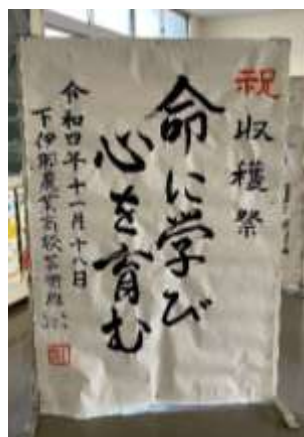 祝 収穫祭
命に学び
心を育む
令和四年十一月十八日
下伊那農業高校